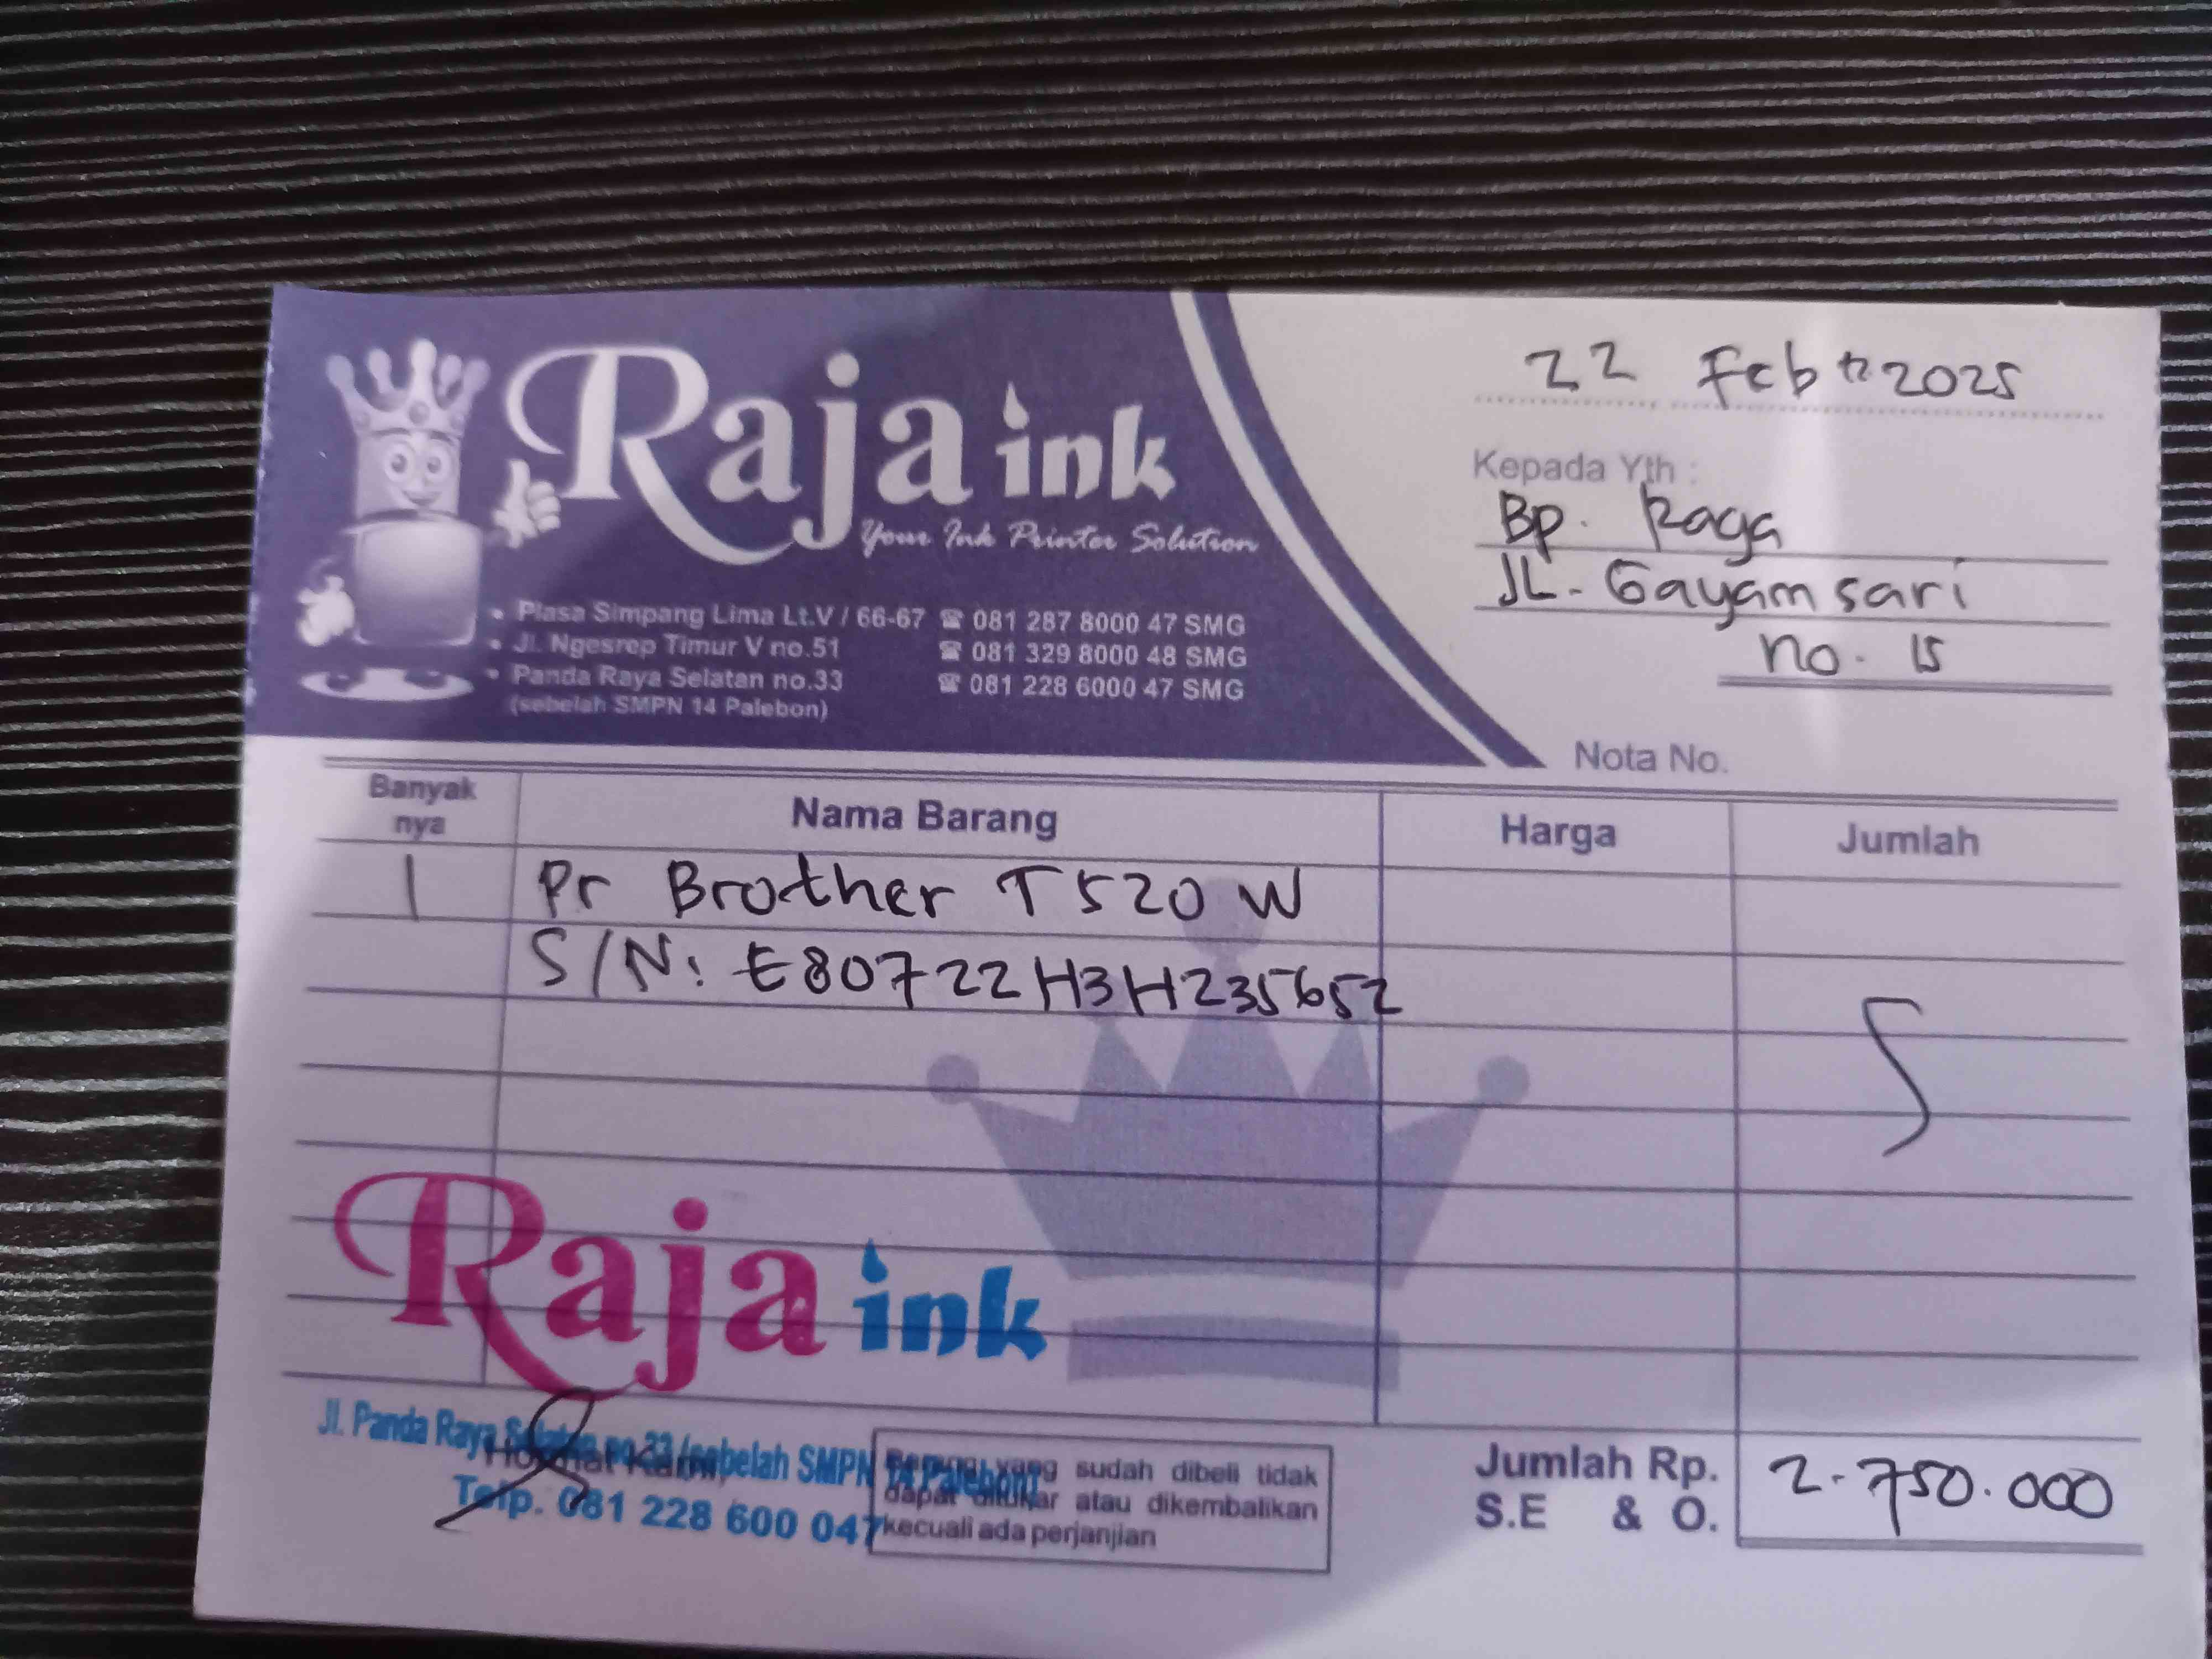 Raja ink
Your Ink Printer Solution
• Plasa Simpang Lima Lt.V / 66-67 ☎ 081 287 8000 47 SMG
• Jl. Ngesrep Timur V no.51 ☎ 081 329 8000 48 SMG
• Panda Raya Selatan no.33 ☎ 081 228 6000 47 SMG
(sebelah SMPN 14 Palebon)
22 Feb 2025
Kepada Yth :
Bp. Raga
JL. Gayamsari
no. 15
Nota No.
Banyak nya Nama Barang Harga Jumlah
1 Pr Brother T520 W
S/N: E80722H3H235652
Raja ink
Jl. Panda Raya Selatan no.33 (sebelah SMPN 14 Palebon)
Telp. 081 228 600 047
Hormat Kami,
Barang yang sudah dibeli tidak
dapat ditukar atau dikembalikan
kecuali ada perjanjian
Jumlah Rp. 2.750.000
S.E & O.